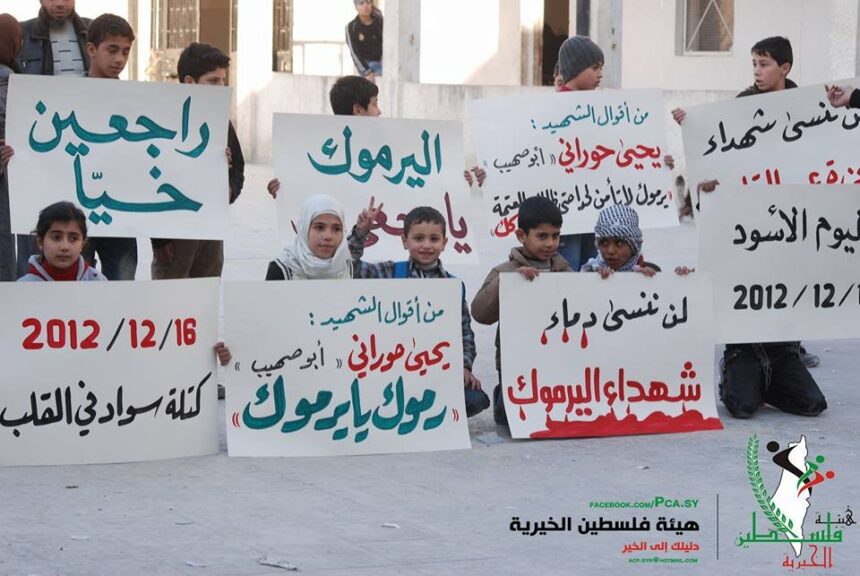 راجعين
خيّا
اليرموك
من أقوال الشهيد :
يحيى حوراني « أبو صهيب »
لن ننسى شهداء
اليوم الأسود
2012/12/
2012/12/16
كتلة سواد في القلب
من أقوال الشهيد :
يحيى حوراني « أبو صهيب »
« رموك يا يرموك »
لن ننسى دماء
شهداء اليرموك
FACEBOOK.COM/PCA.SY
هيئة فلسطين الخيرية
دليلك إلى الخير
ACP.SYR@HOTMAIL.COM
هيئة
فلسطين
الخيرية